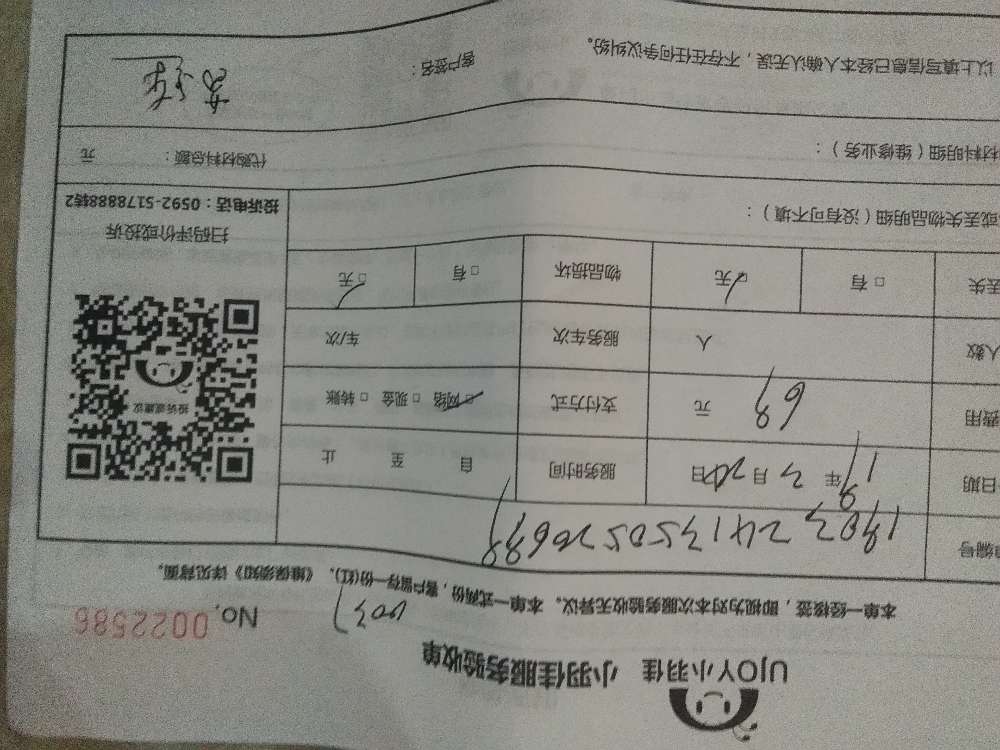 UJOY小羽佳 小羽佳服务验收单
No. 0022586
本单一经核签，即视为对本次服务验收无异议。本单一式两份，客户留存一份(红)。《维保须知》详见背面。
编号
日期 19年 3月 日 服务时间 自 至 止
费用 69 元 支付方式 □网络 □现金 □转账
人数 人 服务车次 车/次
丢失 □有 □无 物品损坏 □有 □无
投诉或建议
扫码评价或投诉
投诉电话：0592-5178888转2
或丢失物品明细（没有可不填）：
材料明细（维修业务）： 代购材料总额： 元
以上填写信息已经本人确认无误，不存在任何争议纠纷。 客户签名：